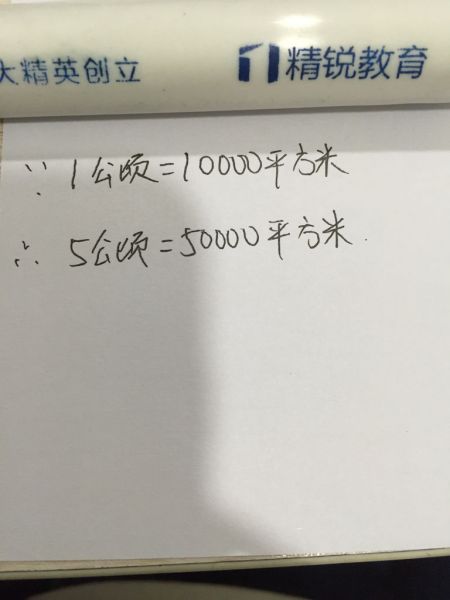 大精英创立 精锐教育
∵ 1公顷=10000平方米
∴ 5公顷=50000平方米.